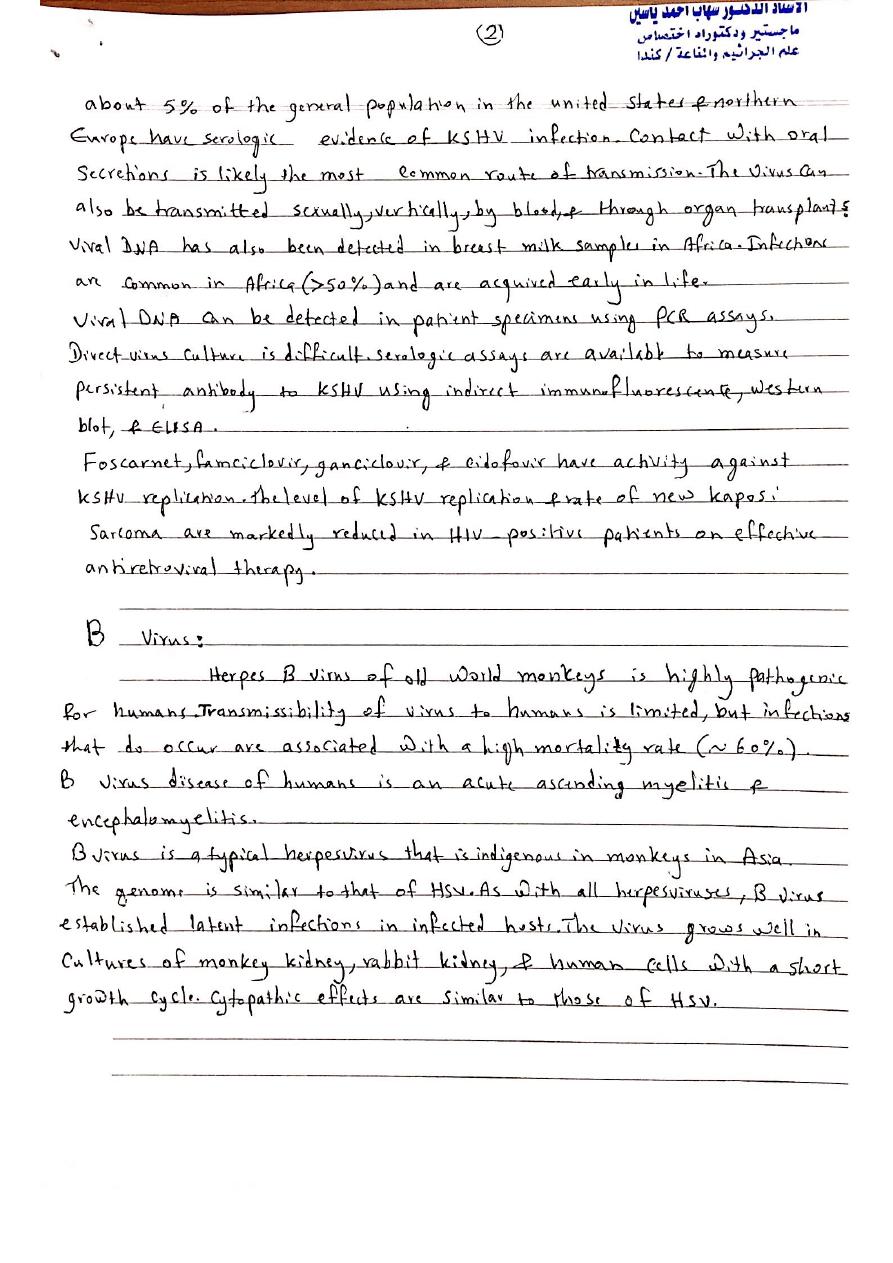 الاستاذ الدكتور سهاب احمد ياسين
ماجستير ودكتوراه اختصاص
علم الجراثيم والمناعة / كندا
(2)
about 5% of the general population in the united states & northern
Europe have serologic evidence of KSHV infection. Contact with oral
Secretions is likely the most common route of transmission. The Virus Can
also be transmitted sexually, vertically, by blood, & through organ transplants
Viral DNA has also been detected in breast milk samples in Africa. Infections
are common in Africa (>50%) and are acquired early in life.
Viral DNA can be detected in patient specimens using PCR assays.
Direct virus culture is difficult. serologic assays are available to measure
persistent antibody to KSHV using indirect immunofluorescente, western
blot, & ELISA.
Foscarnet, famciclovir, ganciclovir, & cidofovir have activity against
KSHV replication. The level of KSHV replication & rate of new kaposi
Sarcoma are markedly reduced in HIV-positive patients on effective
antiretroviral therapy.
B Virus:
Herpes B virus of old world monkeys is highly pathogenic
for humans. Transmissibility of virus to humans is limited, but infections
that do occur are associated with a high mortality rate (~60%).
B virus disease of humans is an acute ascending myelitis &
encephalomyelitis.
B virus is a typical herpesvirus that is indigenous in monkeys in Asia.
The genome is similar to that of HSV. As with all herpesviruses, B virus
established latent infections in infected hosts. The virus grows well in
Cultures of monkey kidney, rabbit kidney, & human cells with a short
growth cycle. Cytopathic effects are similar to those of HSV.